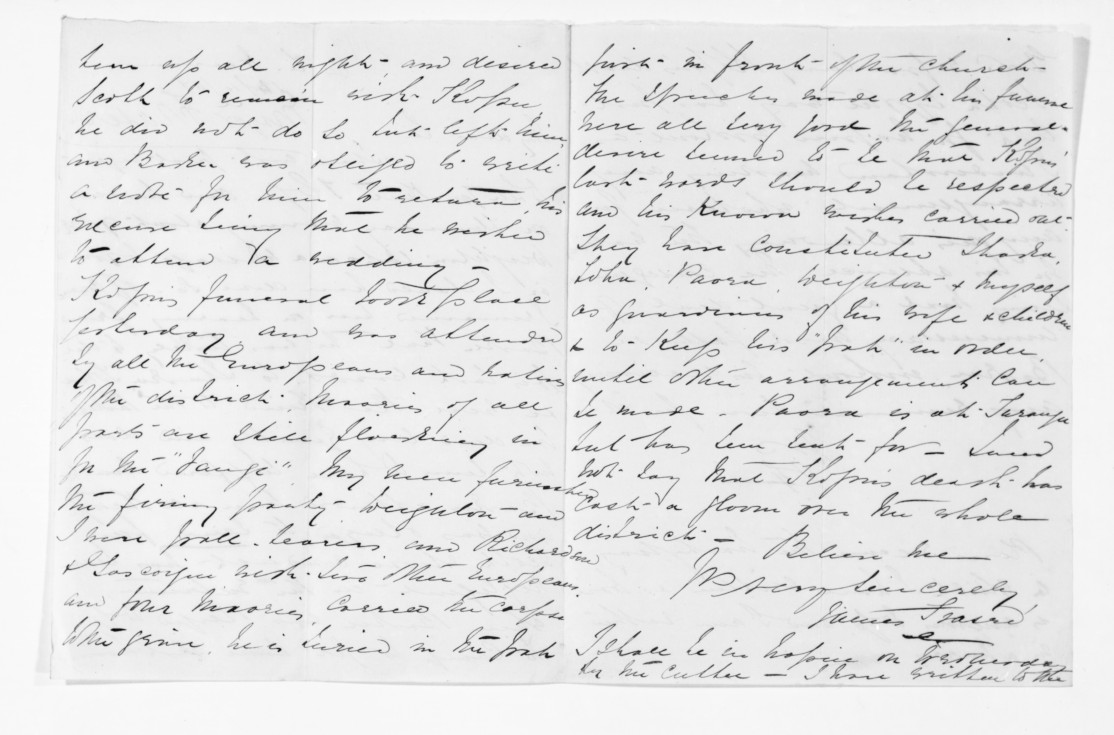 been up all night, and desired
Scott to remain with Kopu
he did not do so but left him,
and Baker was obliged to write
a note for him to return, his
excuse being that he wished
to attend a wedding –
Kopu's funeral took place
yesterday and was attended
by all the Europeans and natives
of the district. Maories of all
parts are still flocking in
for the "Tangi" My men furnished
the firing party Weighton and
I were pall-bearers, and Richardson
& Gascoigne with two other Europeans,
and four Maories, carried the corpse
to the grave. he is buried in the pah
just in front of the church –
the speeches made at his funeral
were all very good, the general
desire seemed to be that Kopu's
last words should be respected
and his known wishes carried out –
They have constituted Ihaka,
Toha, Paora, Weighton & myself
as guardians of his wife & children
& to keep his "pah" in order,
until other arrangements can
be made – Paora is at Turanga
but has been sent for – I need
not say that Kopu's death has
cast a gloom over the whole
district – Believe me
yrs very sincerely,
James Fraser
I shall be in Napier on Wednesday
by the cutter – I have written to the